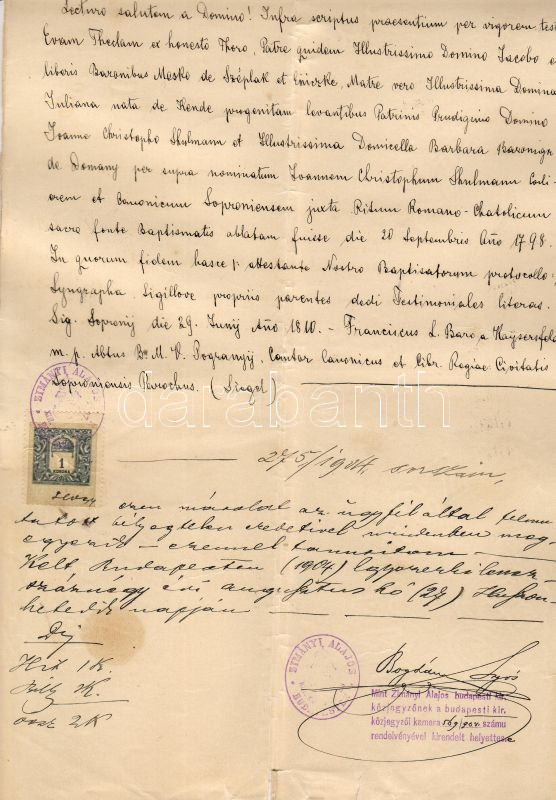 Lecturo salutem a Domino! Infra scriptus praesentium per vigorem test
Evam Theclam ex honesto Thoro, Patre quidem Illustrissimo Domino Jacobo e
liberis Baronibus Mesko de Széplak et Eniczke, Matre vero Illustrissima Domina
Juliana nata de Kende progenitam levantibus Patrinis Domino
Joanne Christopho Shulmann et Illustrissima Domicella Barbara
de Domany per supra nominatum Joannem Christophum Shulmann
orem et Canonicum Soproniensem juxta Ritum Romano-Chatolicum
sacro fonte Baptismatis ablatam fuisse die 20 Septembris Año 1798.
In quorum fidem hasce attestante Nostro Baptisatorum protocollo
Syngrapha, Sigillove proprius parentes dedi Testimoniales literas.
Sig. Sopronij die 29. Junij Año 1810. - Franciscus L. Baro a Haÿsersfeld
m. p. Abtus B. M. V. Cantor Canonicus et Libr. Regiae Civitatis
Soproniensis Parochus. (Siegel)
ZIMÁNYI ALAJOS
1
KORONA
275/1904.
ezen másolat az ügyfél által felmu
tatott bélyegtelen eredetivel mindenben meg
egyezik - ezennel tanusitom -
Kelt, Budapesten (1904) Egyezerkilencz
száznégy évi augusztus hó (27)
hetedik napján
Díj
1K.
2K
ZIMÁNYI ALAJOS
Mint Zimányi Alajos budapesti kir.
közjegyzőnek a budapesti kir.
közjegyzői kamara 569/904. számu
rendelvényével kirendelt helyettese
darabanth